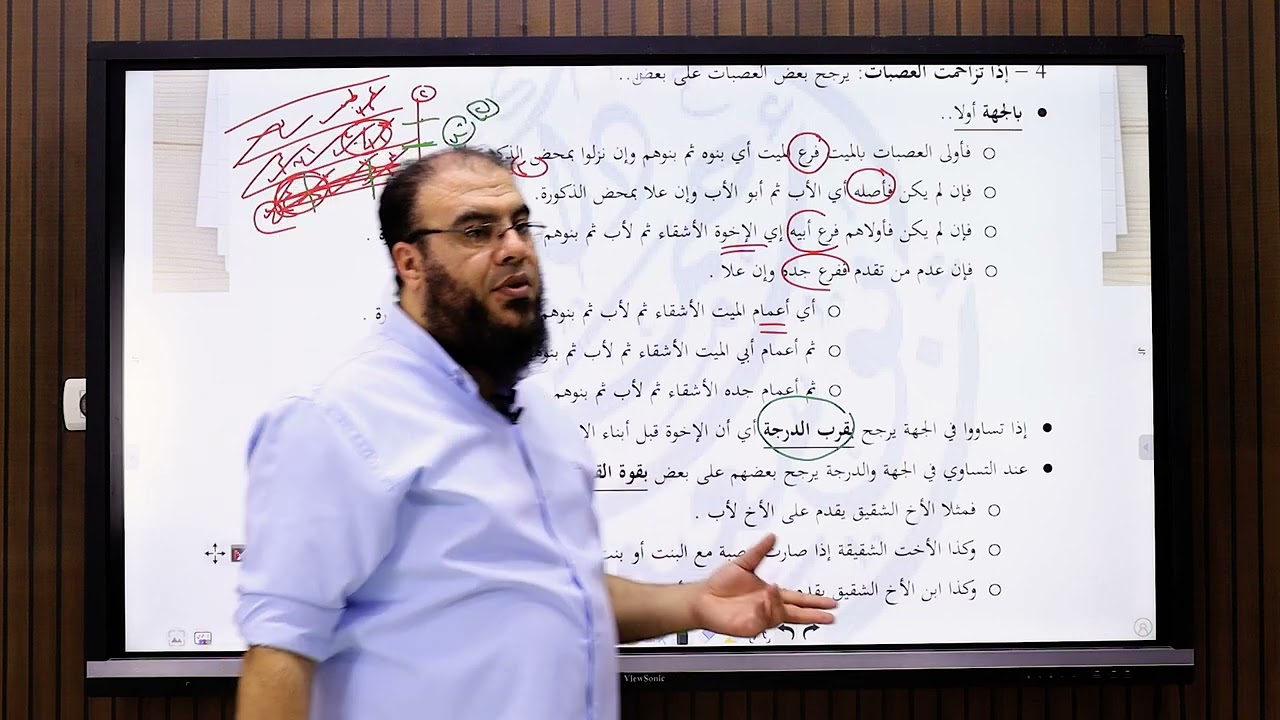 4 – إذا تزاحمت العصبات: يرجح بعض العصبات على بعض..
بالجهة أولا..
فأولى العصبات بالميت فرع الميت أي بنوه ثم بنوهم وإن نزلوا بمحض
فإن لم يكن فأصله أي الأب ثم أبو الأب وإن علا بمحض الذكورة.
فإن لم يكن فأولاهم فرع أبيه إي الإخوة الأشقاء ثم لأب ثم بنوهم
فإن عدم من تقدم ففرع جده وإن علا .
أي أعمام الميت الأشقاء ثم لأب ثم بنوهم
ثم أعمام أبي الميت الأشقاء ثم لأب ثم
ثم أعمام جده الأشقاء ثم لأب ثم بنوهم
إذا تساووا في الجهة يرجح بقرب الدرجة أي أن الإخوة قبل أبناء
عند التساوي في الجهة والدرجة يرجح بعضهم على بعض بقوة
فمثلا الأخ الشقيق يقدم على الأخ لأب .
وكذا الأخت الشقيقة إذا صارت عصبة مع البنت أو
وكذا ابن الأخ الشقيق يقدم
ViewSonic